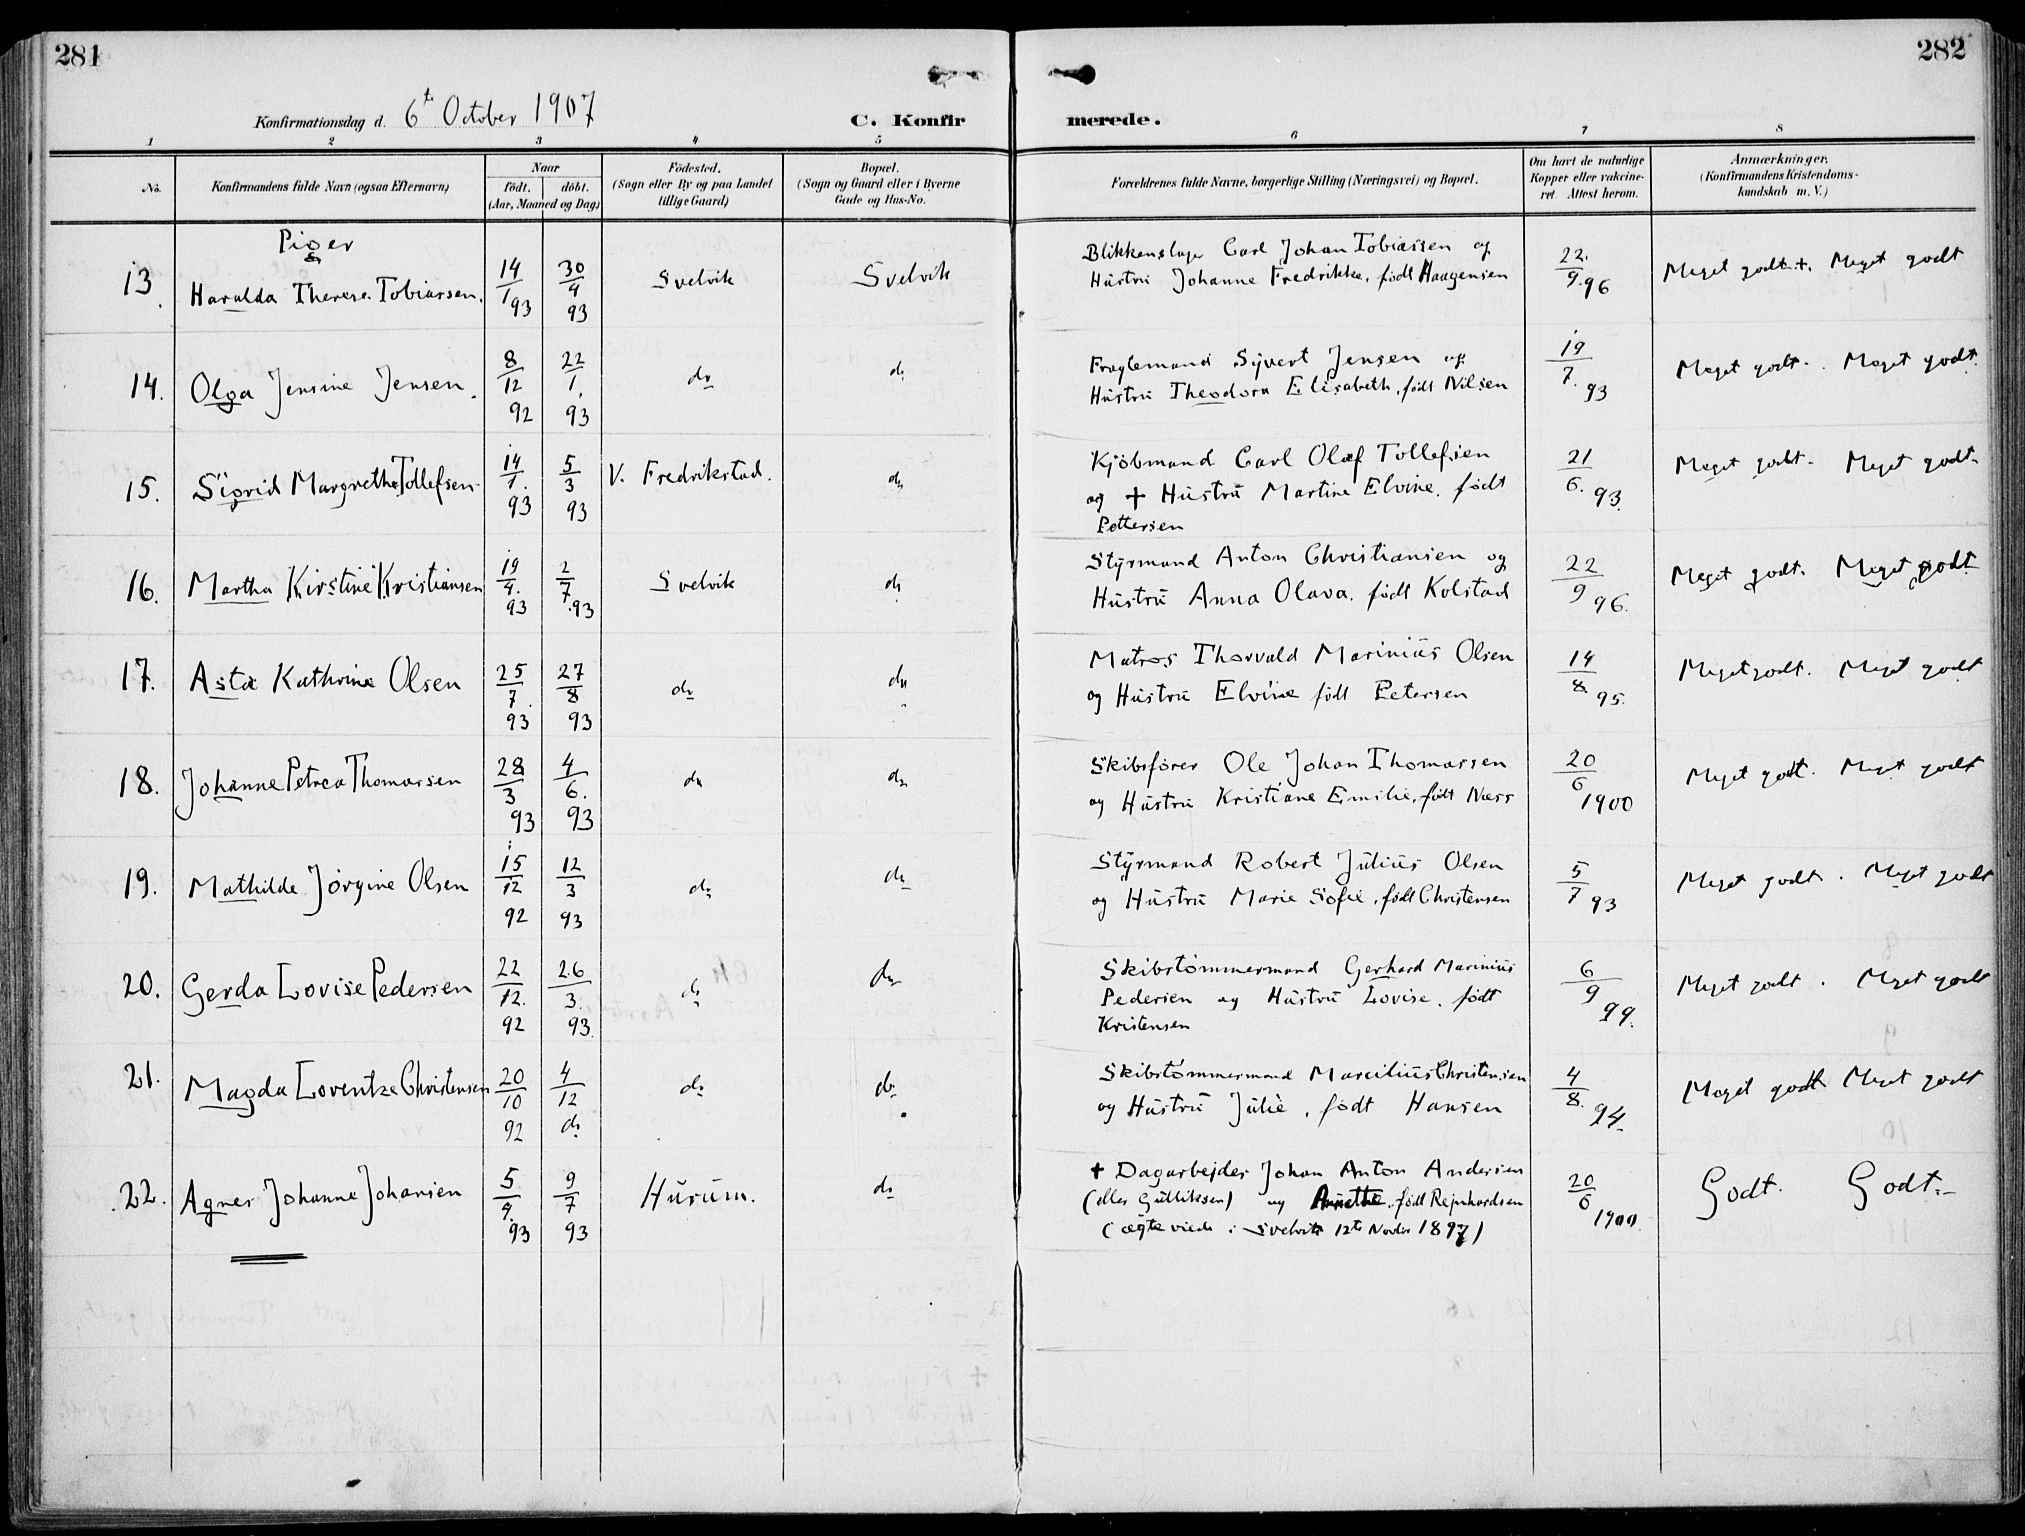 281
282
Konfirmationsdag d. 6te October 1907
C. Konfirmerede.
1 2 3 4 5 6 7 8
No. Konfirmandens fulde Navn (ogsaa Efternavn) Naar födt. döbt. (Aar, Maaned og Dag) Födested. (Sogn eller By og paa Landet tillige Gaard) Bopæl. (Sogn og Gaard eller i Byerne Gade og Hus-No. Forældrenes fulde Navne, borgerlige Stilling (Næringsvei) og Bopæl. Om havt de naturlige Kopper eller vakcineret. Attest herom. Anmærkninger. (Konfirmandens Kristendomskundskab m. V.)
Piger
13. Haralda Therese Tobiassen. 14/1 93 30/4 93 Svelvik Svelvik Blikkenslager Carl Johan Tobiassen og
Hustru Johanne Fredrikke, født Haagensen 22/9 96 Meget godt +. Meget godt
14. Olga Jensine Jensen. 8/12 92 22/1 93 do do Fragtemand Sijvert Jensen og
Hustru Theodora Elisabeth, født Nilsen 19/7 93 Meget godt. Meget godt
15. Sigrid Margrethe Tollefsen 14/1 93 5/3 93 V. Fredrikstad. do Kjöbmand Carl Olaf Tollefsen
og + Hustru Martine Elvine. født
Pettersen 21/6 93 Meget godt. Meget godt
16. Martha Kirstine Kristiansen 19/4 93 2/7 93 Svelvik do Styrmand Anton Christiansen og
Hustru Anna Olava. født Kolstad 22/9 96. Meget godt. Meget godt
17. Asta Kathrine Olsen 25/7 93 27/8 93 do do Matros Thorvald Marinius Olsen
og Hustru Elvine født Petersen 14/8 95. Meget godt. Meget godt
18. Johanne Petrea Thomassen 28/3 93 4/6 93 do do Skibsfører Ole Johan Thomassen
og Hustru Kristiane Emilie, født Næss 20/6 1900 Meget godt. Meget godt
19. Mathilde Jörgine Olsen 15/12 92 12/3 93 do do Styrmand Robert Julius Olsen
og Hustru Marie Sofie, født Christensen 5/7 93 Meget godt. Meget godt
20. Gerda Lovise Pedersen 22/12 92 26/3 93 do do Skibstömmermand Gerhard Marinius
Pedersen og Hustru Lovise. født
Kristensen 6/9 99. Meget godt. Meget godt
21. Magda Loventze Christensen 20/10 92 4/12 do do do Skibstömmermand Marcilius Christensen
og Hustru Julie, født Hansen 4/8 94. Meget godt Meget godt
22. Agnes Johanne Johansen 5/4 93 9/7 93 Hurum. do + Dagarbejder Johan Anton Andersen
(eller Gulliksen) og Anette, født Rejnhardsen
(ægteviede i Svelvik 12te Novbr 1897) 20/6 1900 Godt. Godt.